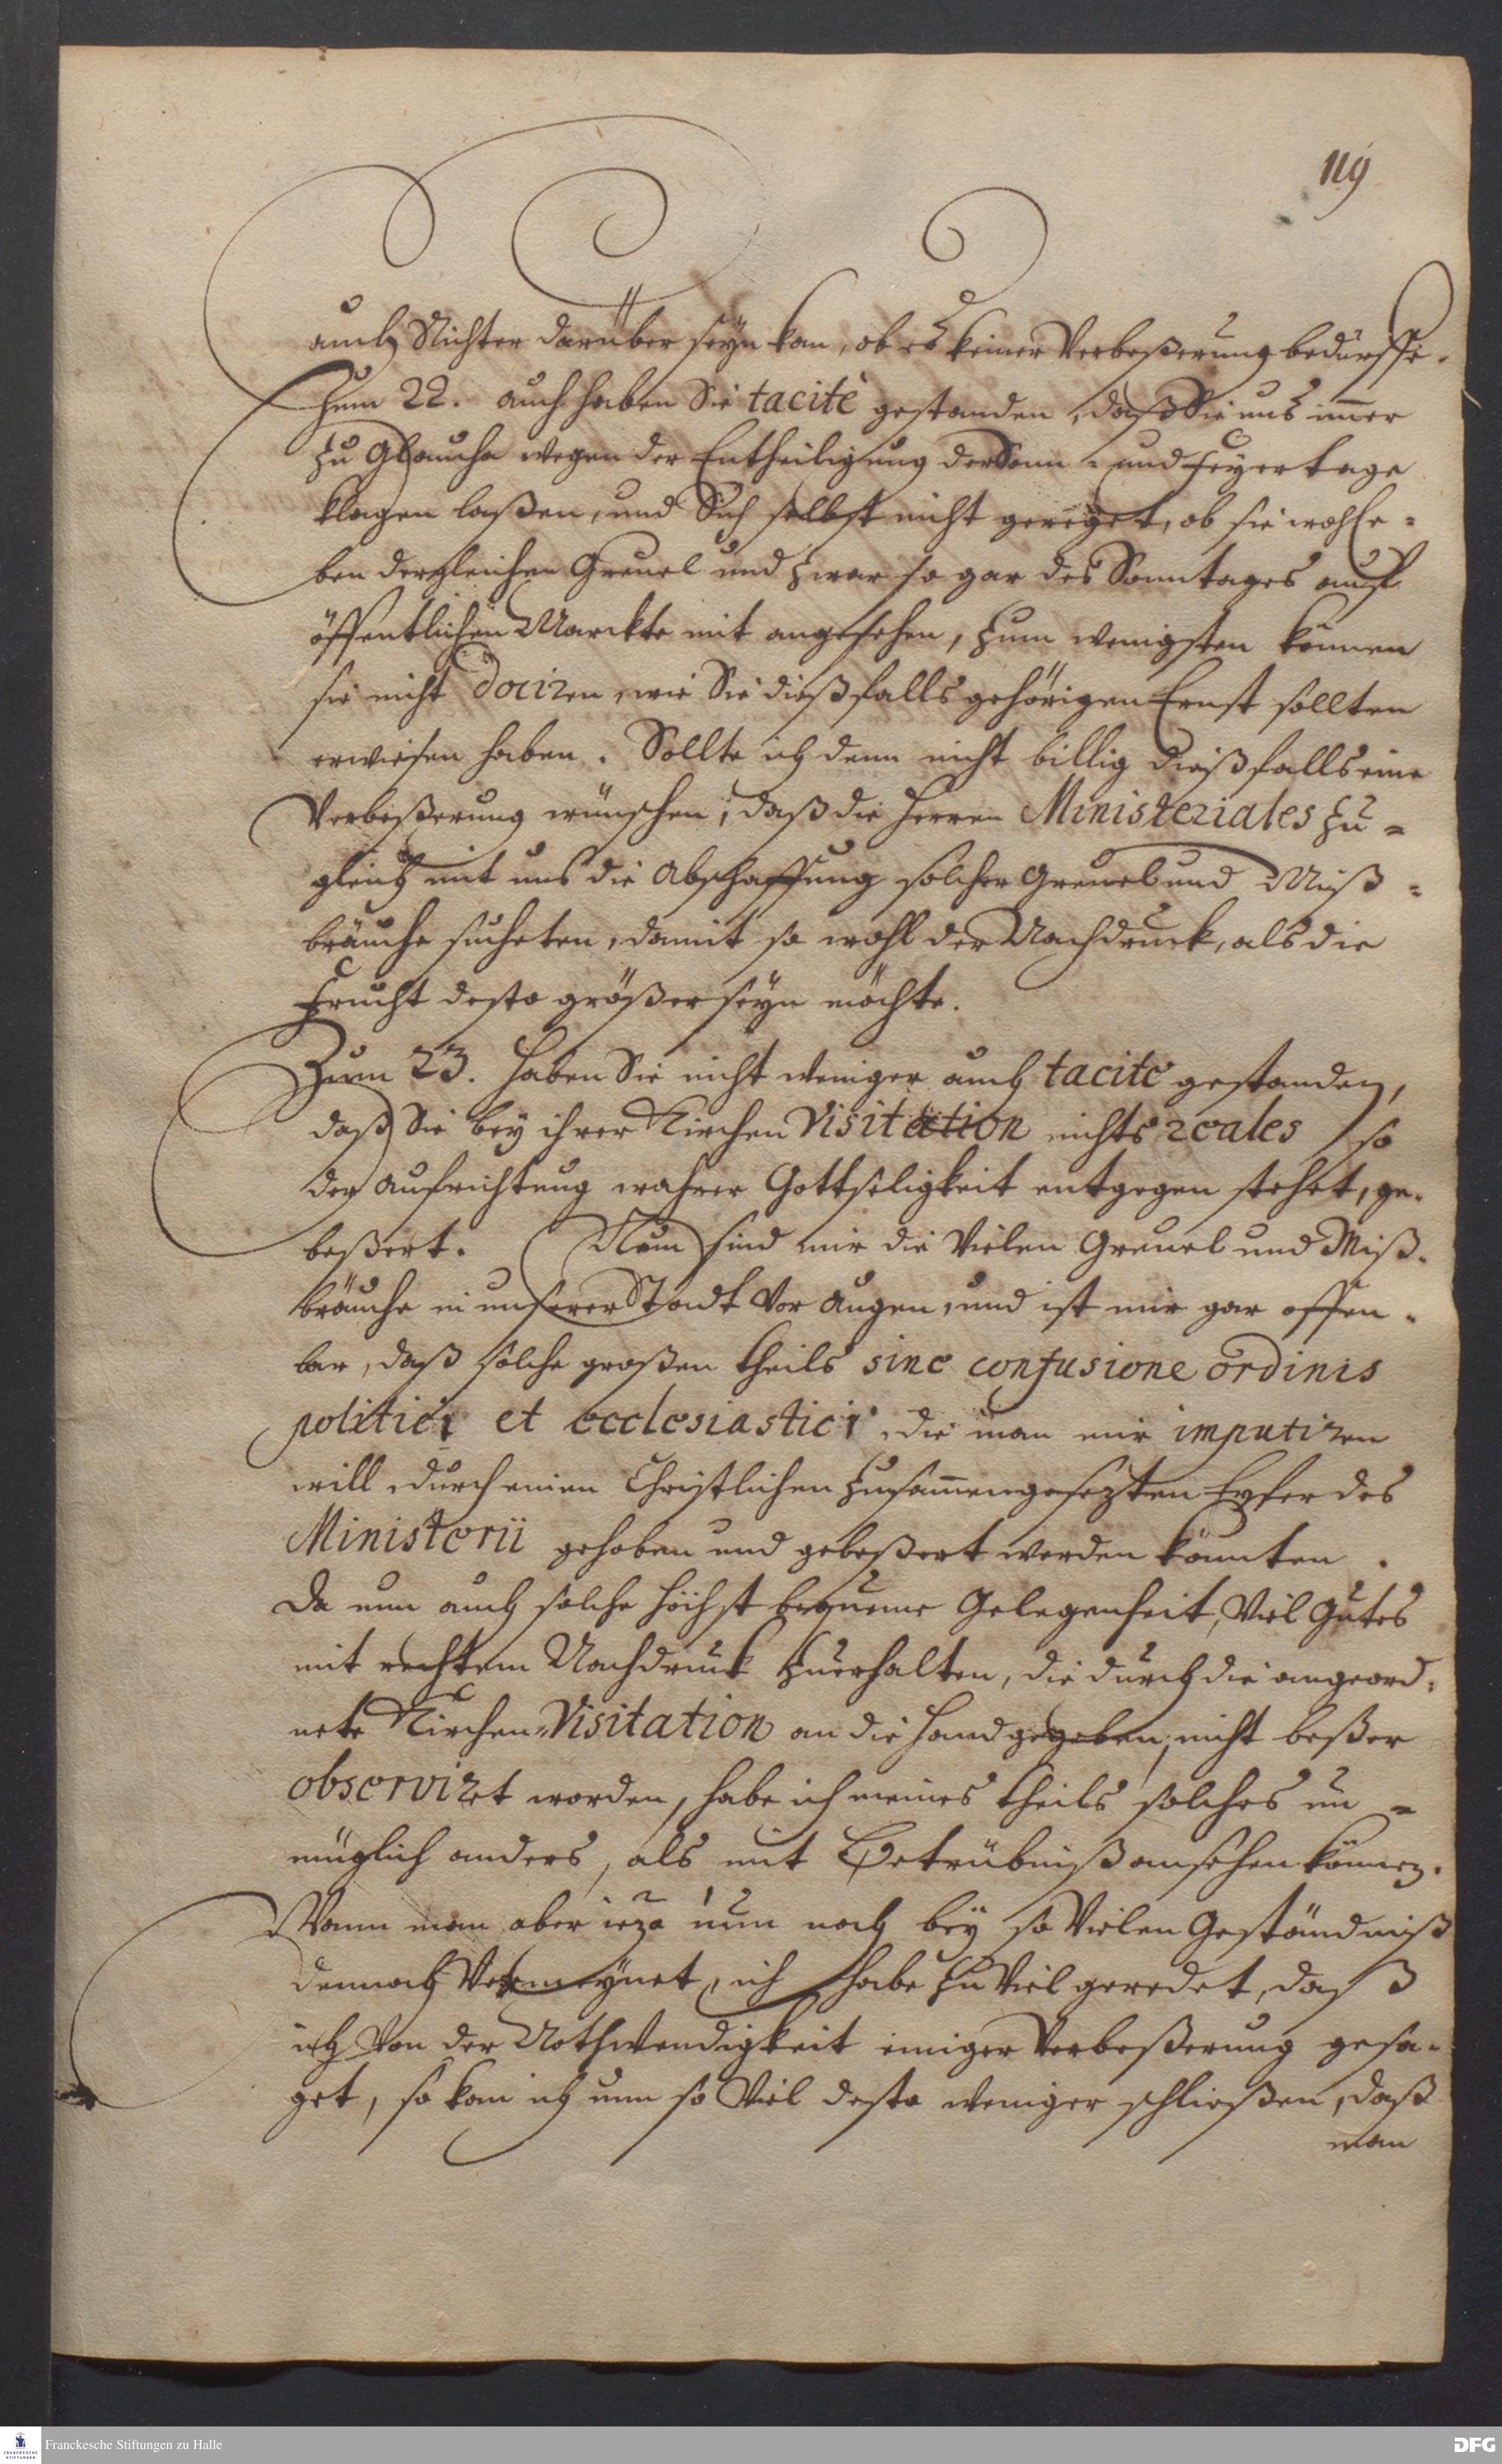 119
auch Richter darüber seyn kan, ob es keiner Verbeßerung bedürffe.
Zum 22. auch haben Sie tacitè gestanden, daß Sie uns im̅er
zu Glaucha wegen der Entheiligung der Sonn- und Feyertage
klagen laßen, und Sich selbst nicht gereget, ob sie wohl e-
ben dergleichen Greuel und zwar so gar des Sonntages auf
öffentlichen Marckte mit angesehen, zum wenigsten können
sie nicht dociren, wie Sie dießfalls gehörigen Ernst sollten
erwiesen haben. Sollte ich denn nicht billig dießfalls eine
Verbeßerung wünschen, daß die Herren Ministeriales zu-
gleich mit uns die Abschaffung solcher Greuel und Miß-
bräuche sucheten, damit so wohl der Nachdruck, als die
Frucht desto größer seyn möchte.
Zum 23. haben Sie nicht weniger auch tacite gestanden,
daß Sie bey ihrer Kirchen Visitation nichts reales so
der Aufrichtung wahrer Gottseligkeit entgegen stehet, ge-
beßert. Nun sind mir die vielen Greuel und Miß-
bräuche in unserer Stadt vor Augen, und ist mir gar offen-
bar, daß solche großen theils sine confusione ordinis
politici et ecclesiastici, die man mir imputiren
will, durch einen Christlichen zusam̅engesezten Eyfer des
Ministerii gehoben und gebeßert werden könnten.
Da nun auch solche höchst bequeme Gelegenheit, viel Gutes
mit rechtem Nachdruck zu erhalten, die durch die angeord-
nete Kirchen-Visitation an die Hand gegeben, nicht beßer
observiret worden, habe ich meines theils solches un-
müglich anders, als mit Betrübniß ansehen können.
Wann man aber iezo nun noch bey so vielen Geständniß
dennoch vermeynet, ich habe zu viel geredet, daß
ich von der Nothwendigkeit einiger Verbeßerung gesa-
get, so kan ich um so viel desto weniger schließen, daß
man
Franckesche Stiftungen zu Halle
DFG